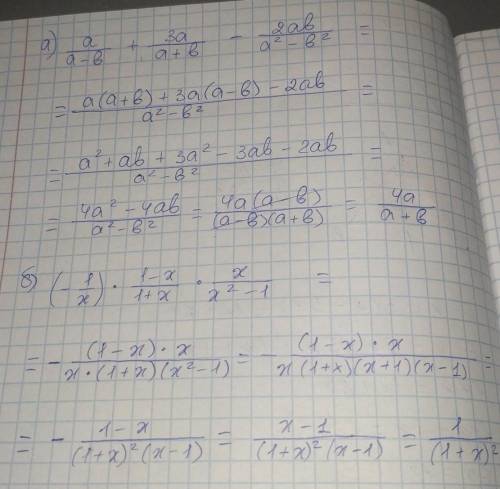 а) a/(a-в) + 3a/(a+в) - 2aв/(a²-в²) =
= (a(a+в) + 3a(a-в) - 2aв)/(a²-в²) =
= (a² + aв + 3a² - 3aв - 2aв)/(a²-в²) =
= (4a² - 4aв)/(a²-в²) = (4a(a-в))/((a-в)(a+в)) = 4a/(a+в)
б) (-1/x) · (1-x)/(1+x) · x/(x²-1) =
= - ((1-x)·x)/(x·(1+x)(x²-1)) = - ((1-x)·x)/(x(1+x)(x+1)(x-1)) =
= - (1-x)/((1+x)²(x-1)) = (x-1)/((1+x)²(x-1)) = 1/(1+x)²